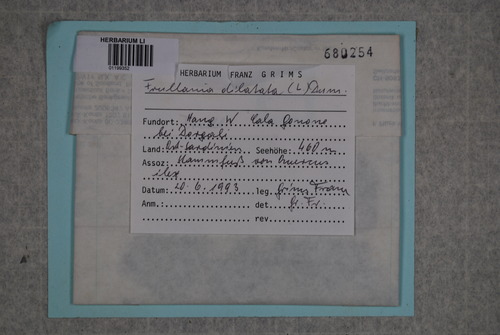 HERBARIUM LI
680254
HERBARIUM FRANZ GRIMS
Frullania dilatata (L.) Dum.
Fundort: Hang W. Cala Gonone
bei Dorgali
Land: Ost-Sardinien Seehöhe: 460 m
Assoz: Stammfuß von Quercus
ilex
Datum: 20.6.1993 leg. Grims Franz
Anm.: det. Gr. Fr.
rev.